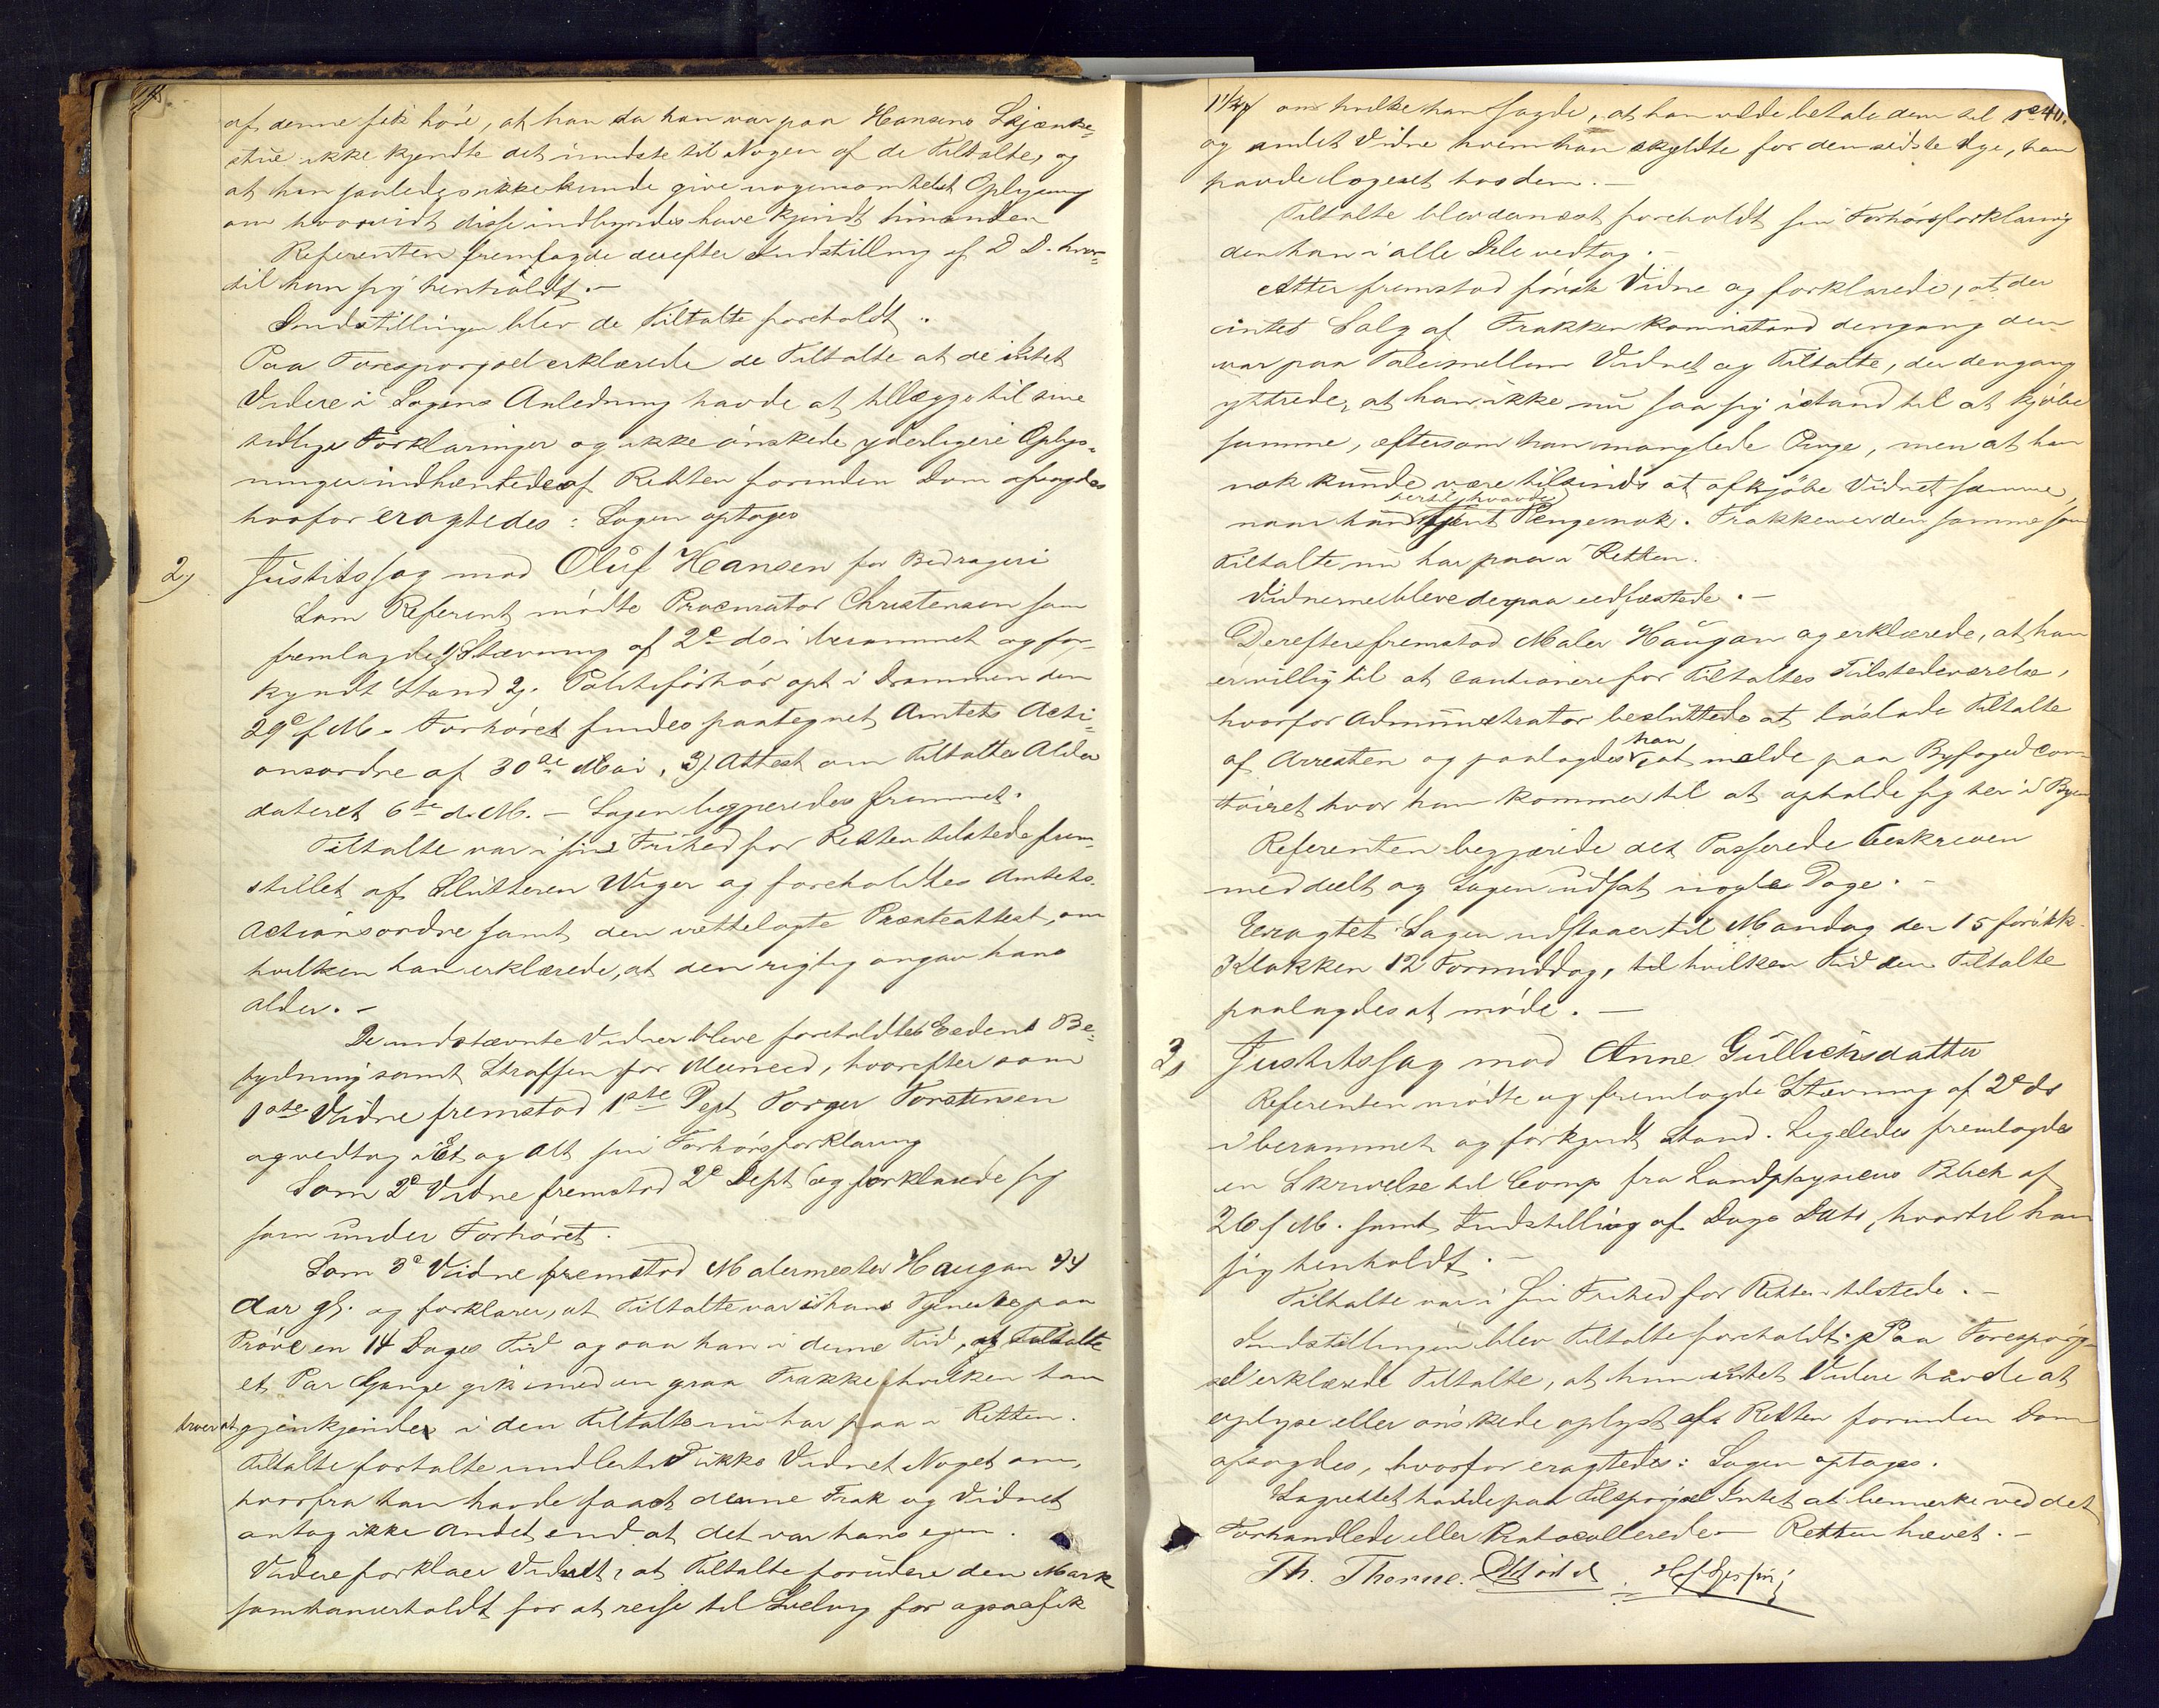 af denne fik høre, at han da han var paa Hansens Skjænke-
stue ikke kjendte det mindste til Nogen af de Tiltalte, og
at han saaledes ikke kunde give nogensomhelst Oplysning
om hvorvidt disse indbyrdes have kjendt hinanden
Referenten fremlagde derefter Indstilling af D D. hvor-
til han sig henholdt. —
Indstillingen blev de Tiltalte foreholdt.
Paa Forespørgsel erklærede de Tiltalte at de intet
Videre i Sagens Anledning havde at tillægge til sine
tidlige Forklaringer og ikke ønskede yderligere Oplys-
ninger indhentede af Retten forinden Dom afsagdes
hvorfor eragtedes: Sagen optages
2) Justitssag mod Oluf Hansen for Bedrageri
Som Referent mødte Procurator Christensen som
fremlagde 1) Stævning af 2de ds i berammet og for-
kyndt Stand 2). Politiforhør opt i Drammen den
29de f M. Forhøret fandtes paategnet Amtets Acti-
onsordre af 30de Mai, 3) Attest om Tiltaltes Alder
dateret 6te d. M. — Sagen begjæredes fremmet.
Tiltalte var i sin Frihed for Retten tilstede frem-
stillet af Slutteren Wiger og foreholdtes Amtets
Actionsordre samt den rettelagte Præsteattest, om
hvilken han erklærede, at den rigtig angav hans
alder. —
De indstævnte Vidner bleve foreholdte Eedens Be-
tydning samt Straffen for Meneed, hvorefter som
1ste Vidne fremstod 1ste Dept Torger Torstensen
og vedtog i Et og Alt sin Forhørsforklaring
Som 2de Vidne fremstod 2de Dept og forklarede sig
som under Forhøret.
Som 3de Vidne fremstod Malermester Haugan 44
Aar gl. og forklarer, at Tiltalte var i hans Tjeneste paa
Prøve en 14 Dages Tid og saa han i denne Tid, at Tiltalte
et Par Gange gik med en graa Frakke hvilken han
troer at gjenkjende i den Tiltalte nu har paa i Retten.
Tiltalte fortalte imidlertid ikke Vidnet Noget om,
hvorfra han havde faaet denne Frak og Vidnet
antog ikke Andet end at det var hans egen.
Videre forklarer Vidnet, at Tiltalte foruden den Mark
som han erholdt for at reise til Svelvig for ogsaa fik
1½ om hvilke han sagde, at han vilde betale dem til
og andet Vidne hvem han skyldte for den sidste Uge, han
havde logeret hos dem. —
Tiltalte blev dernæst foreholdt sin Forhørsforklaring
den han i alle Dele vedtog. —
Atter fremstod første Vidne og forklarede, at der
intet Salg af Frakken kom istand dengang den
var paa Tale mellem Vidnet og Tiltalte, der dengang
yttrede, at han ikke nu saa sig istand til at kjøbe
samme, eftersom han manglede Penge, men at han
nok kunde være tilsinds at afkjøbe Vidnet samme,
naar han havde tjent Penge nok. Frakken er den samme som
Tiltalte nu har paa i Retten.
Vidnerne bleve derpaa eedfæstede. —
Derefter fremstod Maler Haugan og erklærede, at han
er villig til at cautionere for Tiltaltes Tilstedeværelse,
hvorfor Administrator besluttede at løslade Tiltalte
af Arresten og paalagdes han at melde paa Byfogedcon-
toiret hvor han kommer til at opholde sig her i Byen
Referenten begjærede det Passerede beskreven
meddeelt og Sagen udsat nogle Dage. —
Eragtet Sagen udstaaer til Mandag den 15 førstk.
Klokken 12 Formiddag, til hvilken Tid den Tiltalte
paalagdes at møde. —
3) Justitssag mod Anne Gullichsdatter
Referenten mødte og fremlagde Stævning af 2de ds
i berammet og forkyndt Stand. Ligeledes fremlagdes
en Skrivelse til Comp fra Landphysicus Blich af
26 f M. samt Indstilling af Dags Dato, hvortil han
sig henholdt. —
Tiltalte var i sin Frihed for Retten tilstede. —
Indstillingen blev Tiltalte foreholdt. Paa Forespørg-
sel erklærede Tiltalte, at hun intet Videre havde at
oplyse eller ønskede oplyst af Retten forinden Dom
afsagdes, hvorfor eragtedes: Sagen optages.
Lagrettet havde paa Tilspørgsel Intet at bemærke ved det
Forhandlede eller Protocollerede — Retten hævet. —
Th. Thorne.